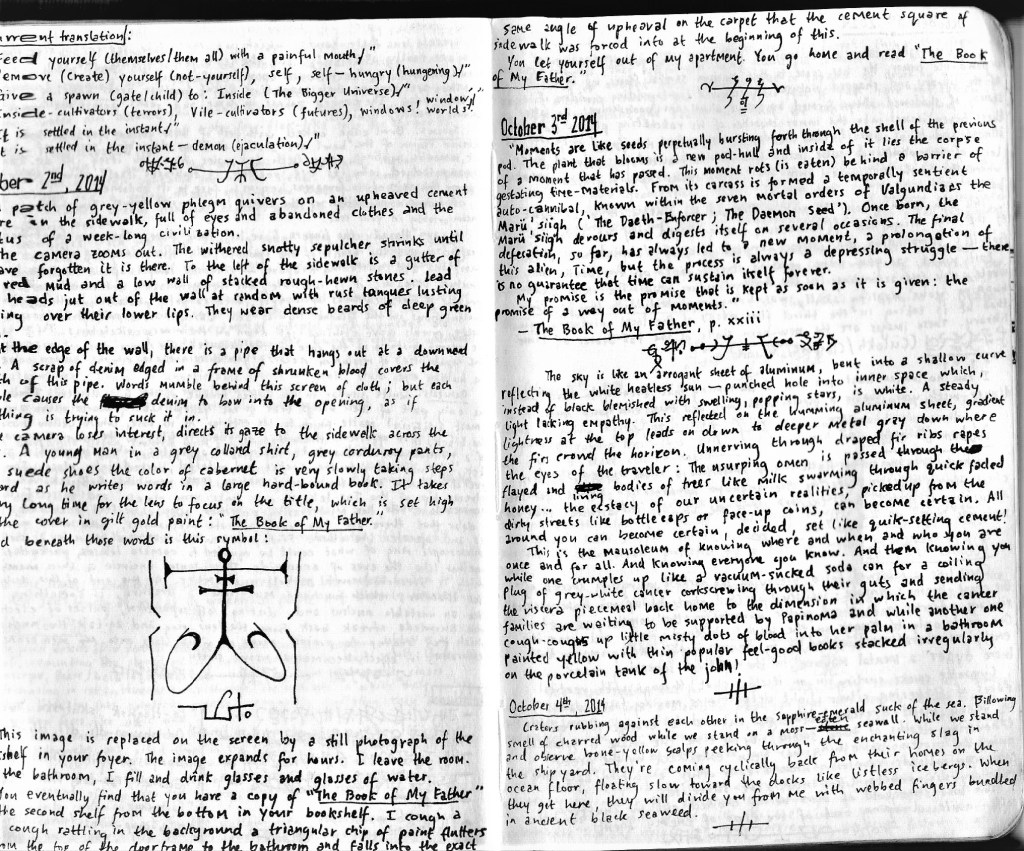 current translation:
Feed yourself (themselves/them all) with a painful mouth/"
Remove (create) yourself (not-yourself), self, self-hungry (hungering)/"
Give a spawn (gate/child) to: Inside (The Bigger Universe)/"
Inside-cultivators (terrors), Vile-cultivators (futures), windows! window/ worlds?"
It is settled in the instant/"
It is settled in the instant-demon (ejaculation)/"
ber 2nd, 2014
patch of grey-yellow phlegm quivers on an upheaved cement
re in the sidewalk, full of eyes and abandoned clothes and the
tus of a week-long civilization.
he camera zooms out. The withered snotty sepulcher shrinks until
ave forgotten it is there. To the left of the sidewalk is a gutter of
red mud and a low wall of stacked rough-hewn stones. Lead
heads jut out of the wall at random with rust tongues lusting
ing over their lower lips. They wear dense beards of deep green
t the edge of the wall, there is a pipe that hangs out at a downward
. A scrap of denim edged in a frame of shrunken blood covers the
th of this pipe. Words mumble behind this screen of cloth; but each
ble causes the denim to bow into the opening, as if
thing is trying to suck it in.
e camera loses interest, directs its gaze to the sidewalk across the
. A young man in a grey colland shirt, grey corduroy pants,
suede shoes the color of cabernet is very slowly taking steps
ord as he writes words in a large hard-bound book. It takes
ry long time for the lens to focus on the title, which is set high
the cover in gilt gold paint: "The Book of My Father."
d beneath those words is this symbol:
This image is replaced on the screen by a still photograph of the
shelf in your foyer. The image expands for hours. I leave the room.
the bathroom, I fill and drink glasses and glasses of water.
You eventually find that you have a copy of "The Book of My Father"
the second shelf from the bottom in your bookshelf. I cough a
cough rattling in the background a triangular chip of paint flutters
om the top of the doorframe to the bathroom and falls into the exact
same angle of upheaval on the carpet that the cement square of
sidewalk was forced into at the beginning of this.
You let yourself out of my apartment. You go home and read "The Book
of My Father."
October 3rd 2014
"Moments are like seeds perpetually bursting forth through the shell of the previous
pod. The plant that blooms is a new pod-hull and inside of it lies the corpse
of a moment that has passed. This moment rots (is eaten) behind a barrier of
gestating time-materials. From its carcass is formed a temporally sentient
auto-cannibal, known within the seven mortal orders of Valgundia as the
Marü'siigh ('The Daeth-Enforcer; The Daemon Seed'). Once born, the
Marü'siigh devours and digests itself on several occasions. The final
defecation, so far, has always led to a new moment, a prolongation of
this alien, Time, but the process is always a depressing struggle — there
is no guarantee that time can sustain itself forever.
My promise is the promise that is kept as soon as it is given: the
promise of a way out of moments."
— The Book of My Father, p. xxiii
The sky is like an arrogant sheet of aluminum, bent into a shallow curve
reflecting the white heatless sun — punched hole into inner space which,
instead of black blemished with swelling, popping stars, is white. A steady
light lacking empathy. This reflected on the humming aluminum sheet, gradient
lightness at the top leads on down to deeper metal grey down where
the firs crowd the horizon. Unnerving through draped fir ribs rapes
the eyes of the traveler: The usurping omen is passed through the
flayed and lining bodies of trees like milk swarming through quick faded
honey... the ecstacy of our uncertain realities, picked up from the
dirty streets like bottlecaps or face-up coins, can become certain. All
around you can become certain, decided, set like quik-setting cement!
This is the mausoleum of knowing where and when and who you are
once and for all. And knowing everyone you know. And them knowing you
while one crumples up like a vacuum-sucked soda can for a coiling
plug of grey-white cancer corkscrewing through their guts and sending
the viscera piecemeal back home to the dimension in which the cancer
families are waiting to be supported by Papinoma and while another one
cough-coughs up little misty dots of blood into her palm in a bathroom
painted yellow with thin popular feel-good books stacked irregularly
on the porcelain tank of the john!
October 4th 2014
Craters rubbing against each other in the sapphire-emerald suck of the sea. Billowing
smell of charred wood while we stand on a moss-eaten seawall. While we stand
and observe bone-yellow scalps peeking through the enchanting slag in
the shipyard. They're coming cyclically back from their homes on the
ocean floor, floating slow toward the docks like listless icebergs. When
they get here, they will divide you from me with webbed fingers bundled
in ancient black seaweed.